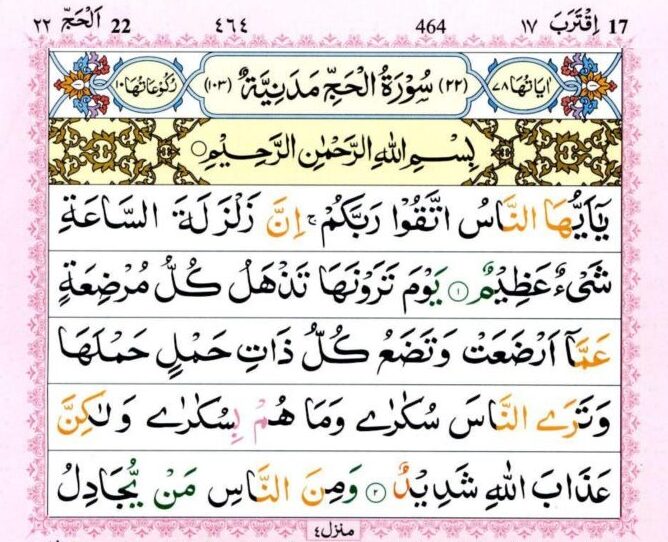 17 اِقْتَرَبَ ١٧ 464 ٤٦٤ 22 اَلْحَجّ ٢٢
اٰيَاتُهَا ٧٨ (٢٢) سُوْرَةُ الْحَجِّ مَدَنِيَّةٌ (١٠٣) رُكُوْعَاتُهَا ١٠
بِسْمِ اللّٰهِ الرَّحْمٰنِ الرَّحِيْمِ
يٰٓاَيُّهَا النَّاسُ اتَّقُوْا رَبَّكُمْ ۚ اِنَّ زَلْزَلَةَ السَّاعَةِ
شَيْءٌ عَظِيْمٌ ١ يَوْمَ تَرَوْنَهَا تَذْهَلُ كُلُّ مُرْضِعَةٍ
عَمَّاۤ اَرْضَعَتْ وَتَضَعُ كُلُّ ذَاتِ حَمْلٍ حَمْلَهَا
وَتَرَى النَّاسَ سُكٰرٰى وَمَا هُمْ بِسُكٰرٰى وَلٰكِنَّ
عَذَابَ اللّٰهِ شَدِيْدٌ ٢ وَمِنَ النَّاسِ مَنْ يُّجَادِلُ
منزل ٤